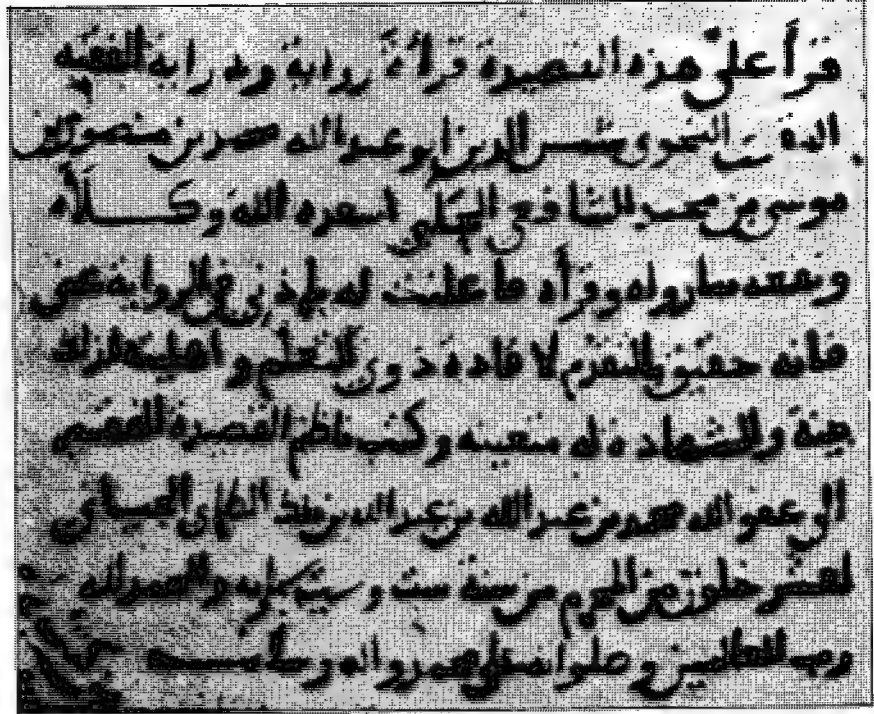 قرأ على هذه القصيدة قراءة رواية ودراية الفقيه
الثقة النحوى شمس الدين ابو عبد الله محمد بن منصور بن
موسى بن محمد الشافعى الحلبى اسعده الله وكلأه
وسمعته سائر وله وقرأه ما علمت له بها ذى فى الرواية عنى
فانه حقيق بالتقدم لافادة ذوى التعلم و اهليته لذلك
بينة والشهادة له متعينة وكتب ناظم القصيدة الفقير
الى عفو الله محمد بن عبد الله بن عبد الله بن ملك الطائى الجيانى
لعشر خلون من المحرم من سنة ست وستين وستماية والحمد لله
رب العالمين وصلواته على محمد واله وسلامــه